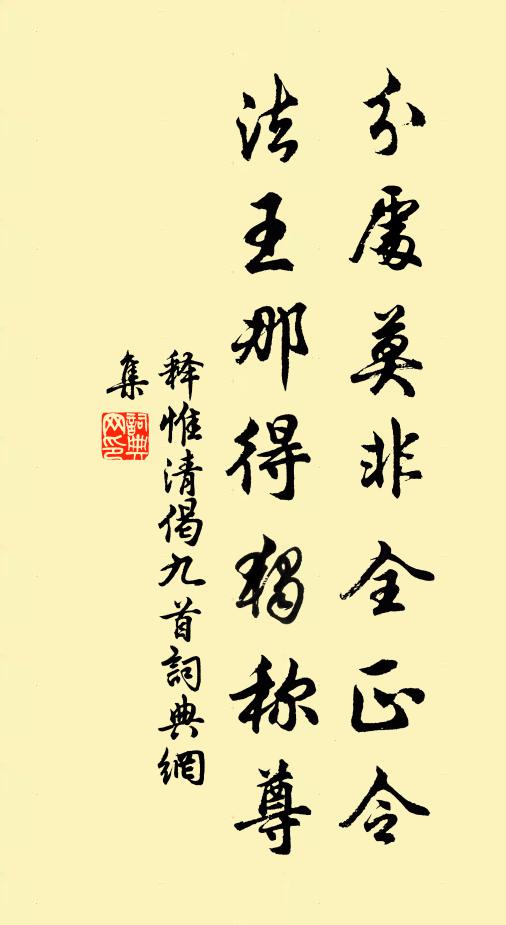 分處莫非全正令
法王那得独称尊
释惟清偈九首詞典網
集
詞典网印